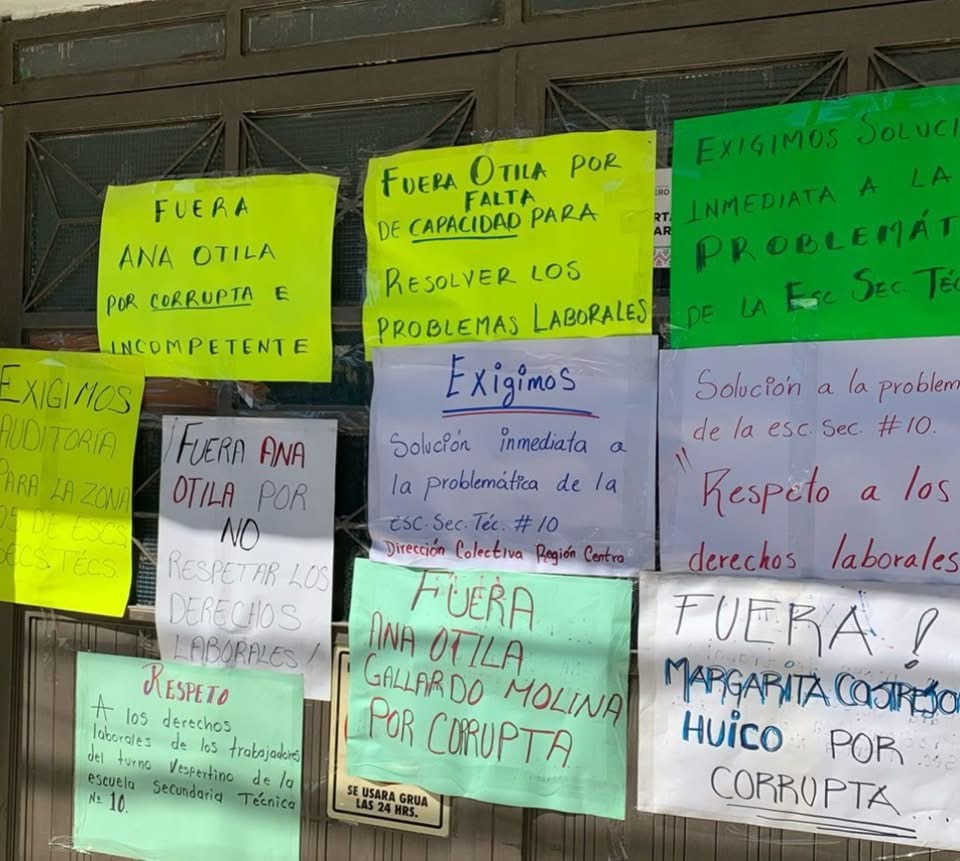 FUERA
ANA OTILA
POR CORRUPTA E
INCOMPETENTE
FUERA OTILA POR
FALTA
DE CAPACIDAD PARA
RESOLVER LOS
PROBLEMAS LABORALES
EXIGIMOS SOLUCI
INMEDIATA A LA
PROBLEMÁT
DE LA ESC SEC. TÉC
EXIGIMOS
AUDITORÍA
PARA LA ZONA
DE ESCS
SECS. TÉCS.
¡FUERA ANA
OTILA POR
NO
RESPETAR LOS
DERECHOS
LABORALES!
Exigimos
Solución inmediata a
la problemática de la
esc. Sec. Téc. #10
Dirección Colectiva Región Centro
Solución a la problem
de la esc. sec. #10.
"Respeto a los
derechos laborales
RESPETO
A los derechos
laborales de los trabajadores
del turno Vespertino de la
escuela Secundaria Técnica
Nº 10.
FUERA
ANA OTILA
GALLARDO MOLINA
POR CORRUPTA
FUERA!
MARGARITA CASTREJO
HUICO POR
CORRUPTA...
SE USARA GRUA
LAS 24 HRS.